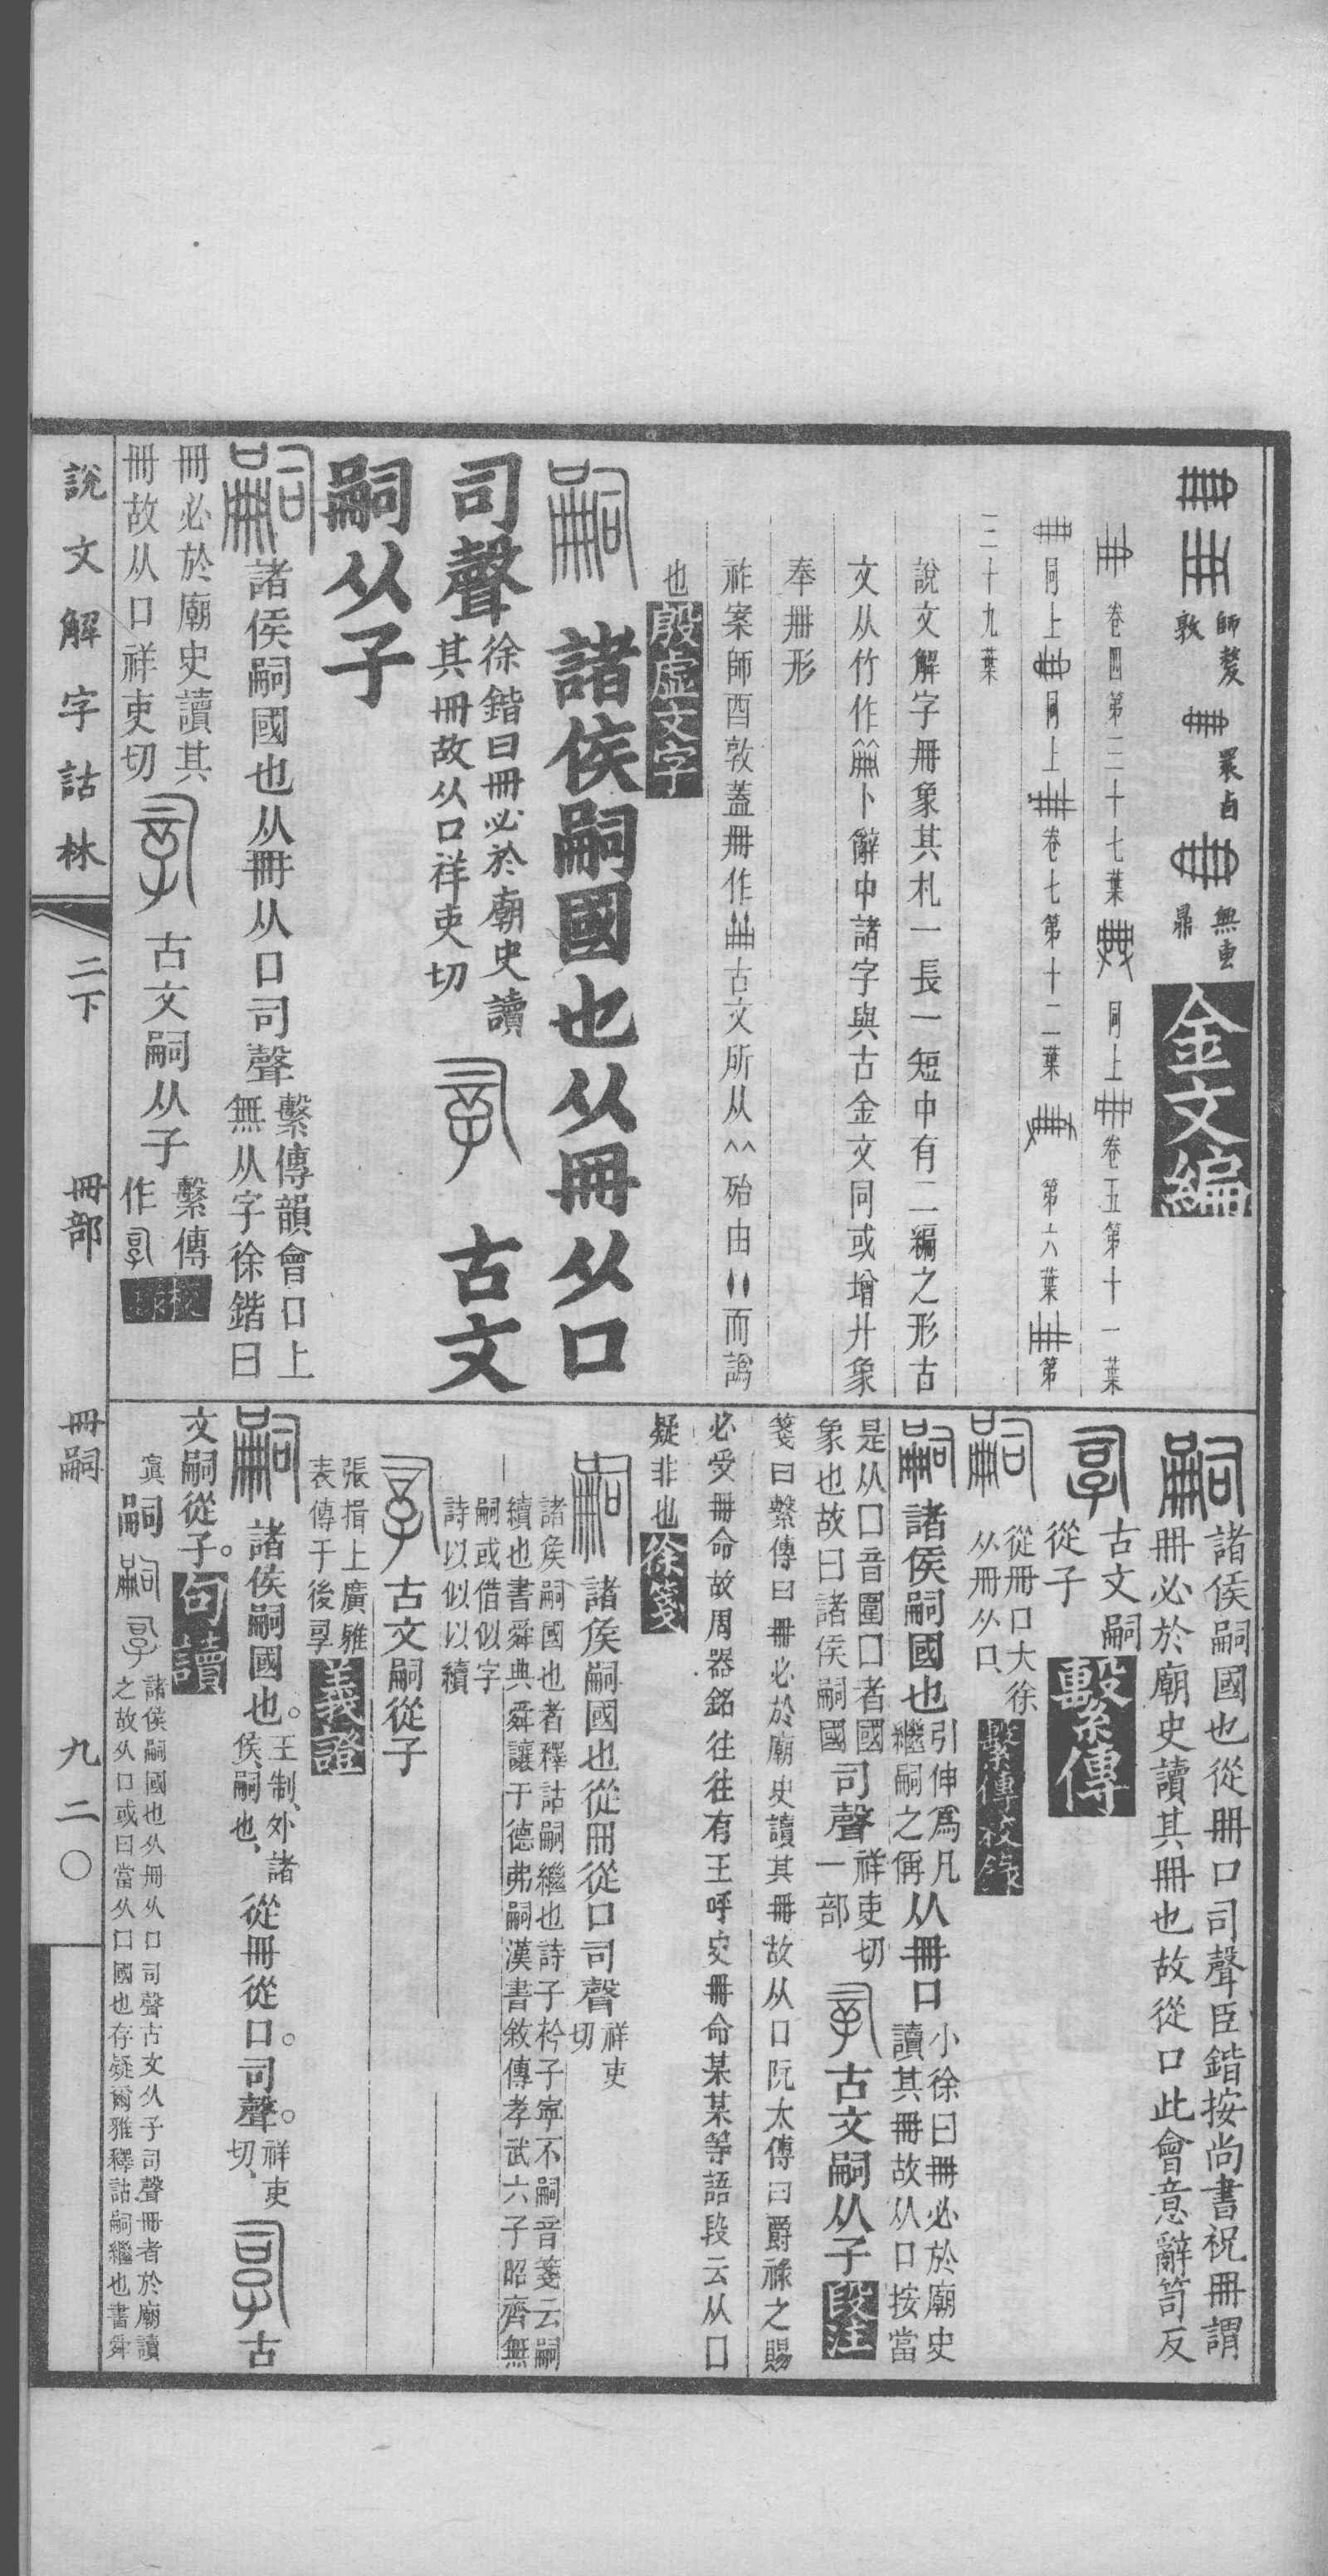 師𠭰敦
㒸卣
無叀鼎
金文編
卷四第三十七葉
同上
卷五第十一葉
同上
同上
卷七第十二葉
第六葉
第三十九葉
說文解字冊象其札一長一短中有二編之形古
文从竹作𠕋卜辭中諸字與古金文同或增廾象
奉冊形
祚案師酉敦蓋冊作 古文所从 殆由 而譌
也殷虛文字
嗣諸侯嗣國也从冊从口
司聲徐鍇曰冊必於廟史讀其冊故从口祥吏切 古文
嗣从子
嗣諸侯嗣國也从冊从口司聲繫傳韻會口上無从字徐鍇曰
冊必於廟史讀其冊故从口祥吏切 古文嗣从子繫傳作 校錄
嗣諸侯嗣國也從冊口司聲臣鍇按尚書祝冊謂
冊必於廟史讀其冊也故從口此會意辭笥反
古文嗣從子繫傳
嗣從冊口大徐从冊从口繫傳校錄
嗣諸侯嗣國也引伸爲凡繼嗣之偁从冊口小徐曰冊必於廟史讀其冊故从口按當
是从囗音圍囗者國象也故曰諸侯嗣國司聲祥吏切一部 古文嗣从子段注
箋曰繫傳曰冊必於廟史讀其冊故从口阮太傅曰爵祿之賜
必受冊命故周器銘往往有王呼史冊命某某等語段云从囗
疑非也徐箋
嗣諸侯嗣國也從冊從口司聲祥吏切
諸侯嗣國也者釋詁嗣繼也詩子衿子寧不嗣音箋云嗣
續也書舜典舜讓于德弗嗣漢書敘傳孝武六子昭齊無
嗣或借似字
詩以似以續
古文嗣從子
張揖上廣雅表傳于後孠義證
嗣諸侯嗣國也。王制、外諸侯嗣也、從冊從口。司聲。祥吏切、 古
文嗣從子。句讀
寘嗣 諸侯嗣國也从冊从口司聲古文从子司聲冊者於廟讀
之故从口或曰當从囗國也存疑爾雅釋詁嗣繼也書舜
說文解字詁林
二下
冊部
冊嗣
九二〇